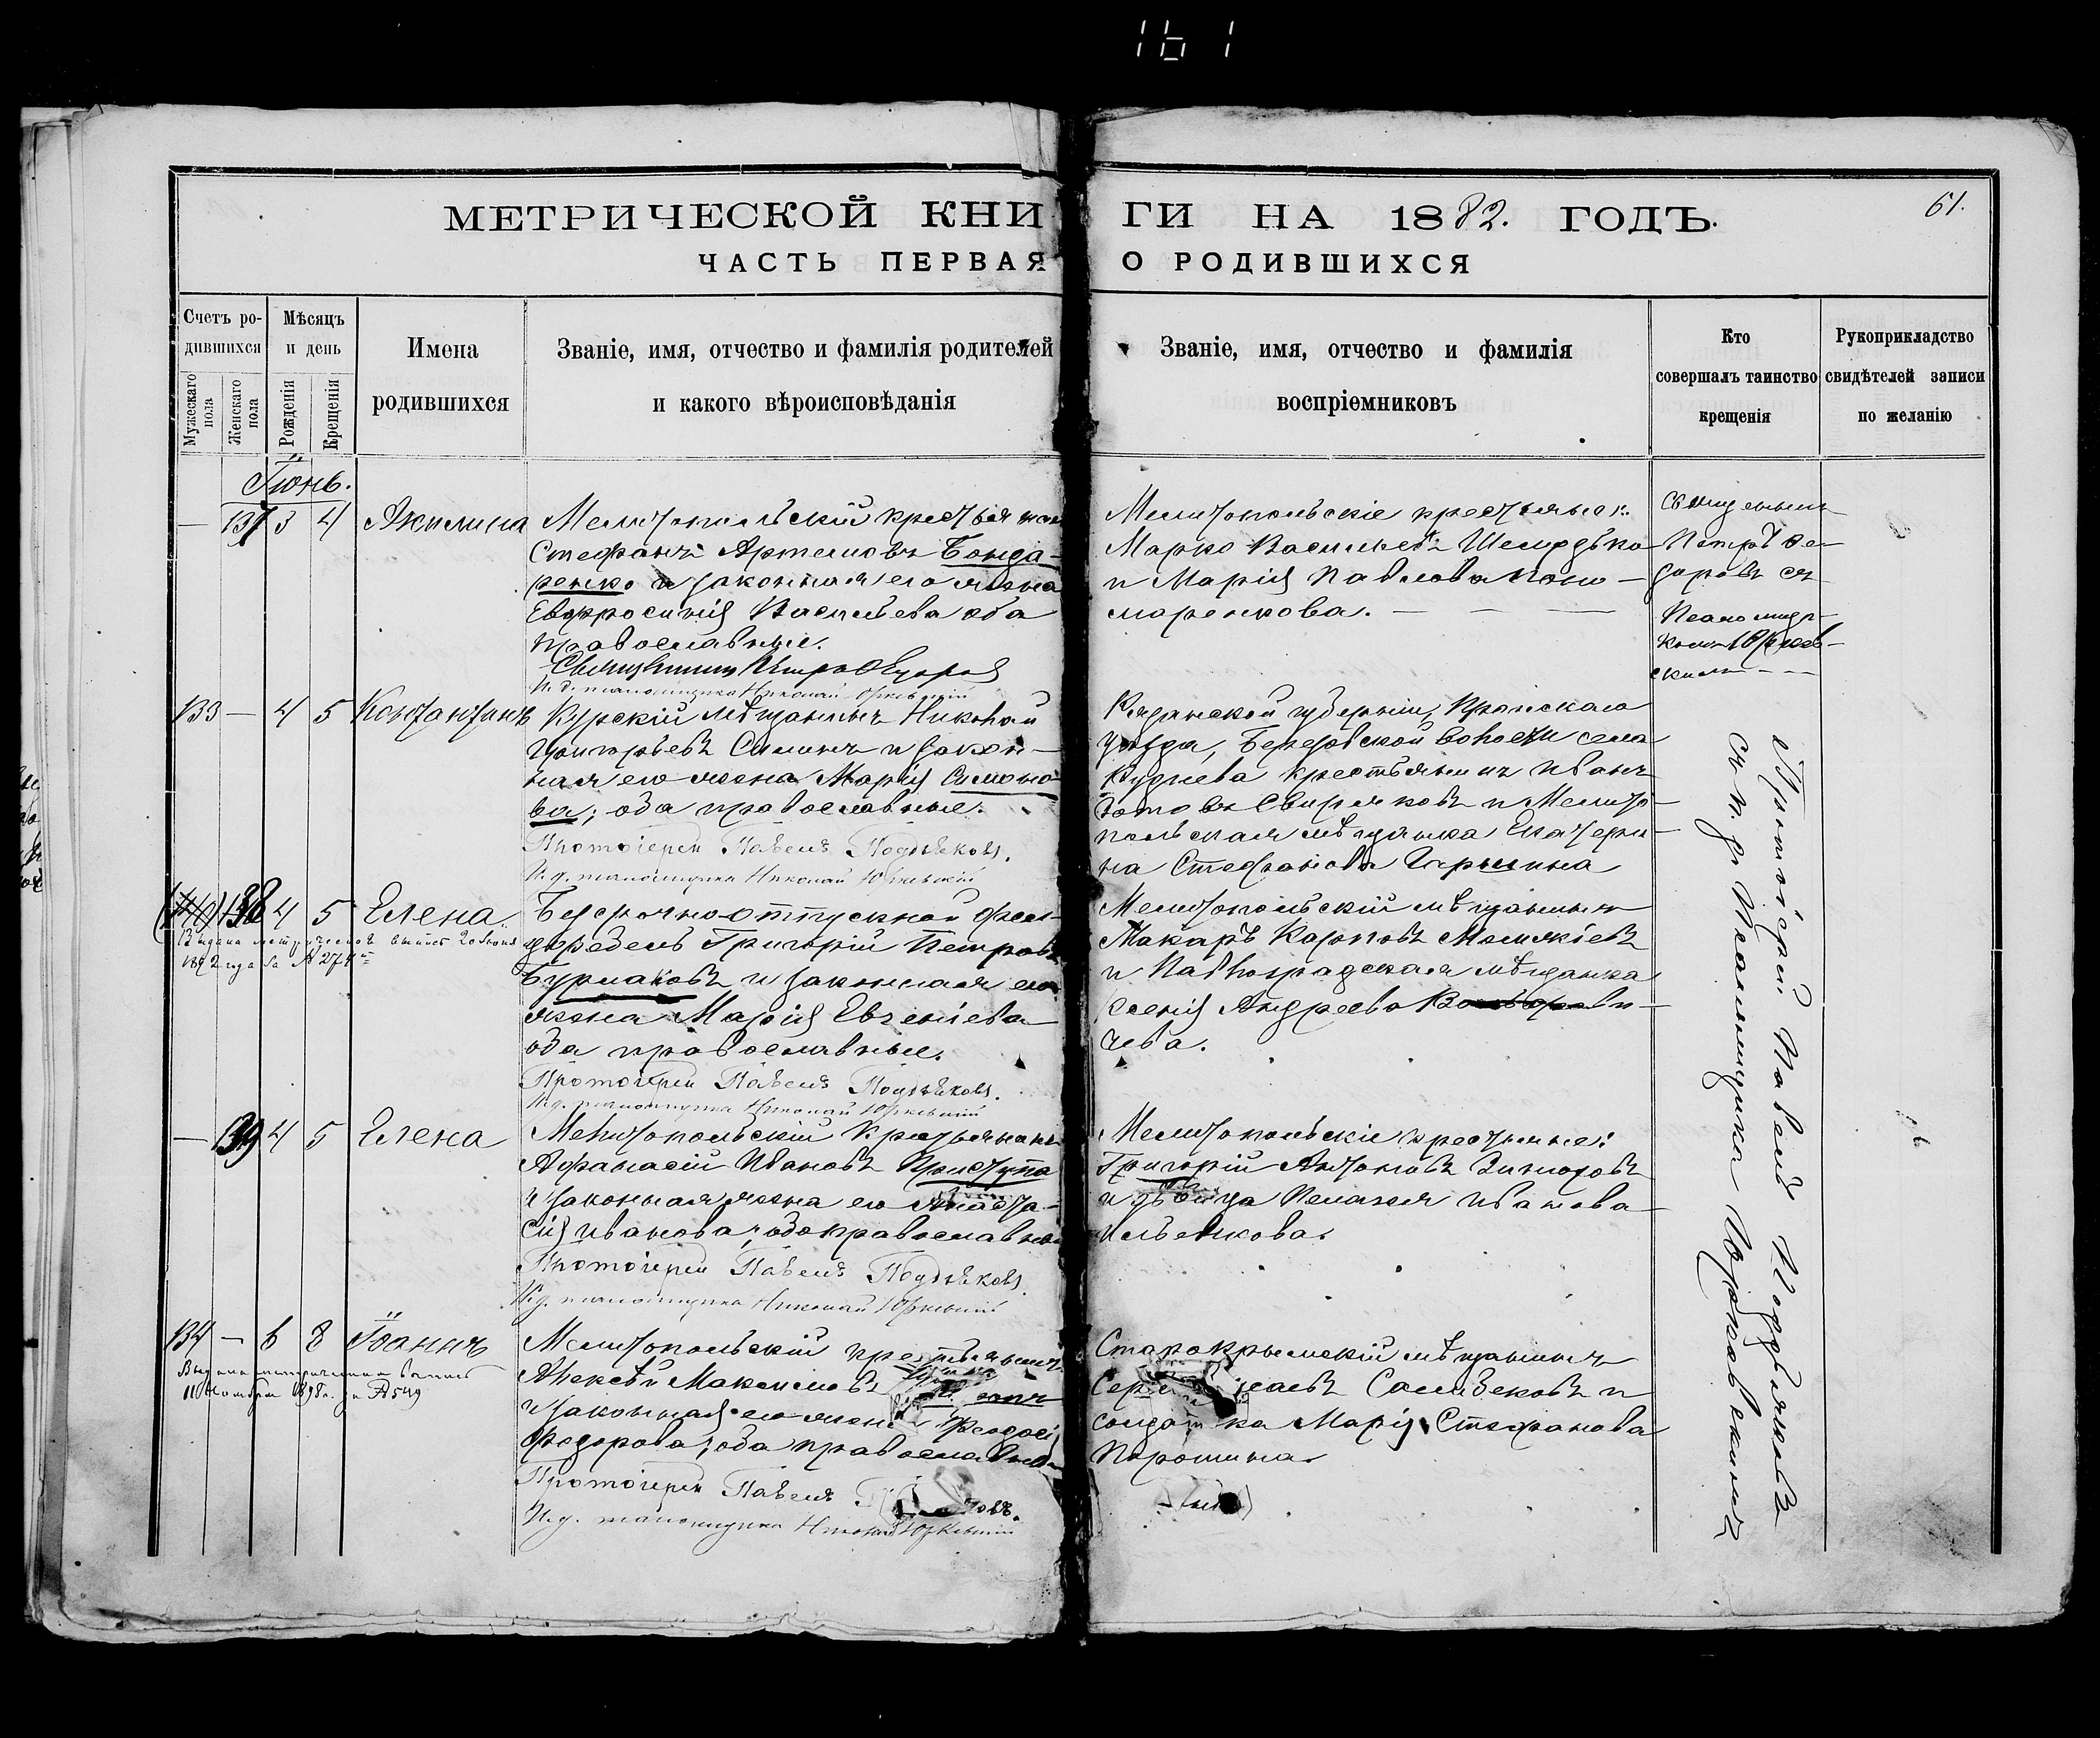 161
МЕТРИЧЕСКОЙ КНИГИ НА 1882. ГОДЪ.
61.
ЧАСТЬ ПЕРВАЯ О РОДИВШИХСЯ
Счетъ ро-
дившихся
Мужескаго пола
Женскаго пола
Мѣсяцъ
и день
Рожденія
Крещенія
Имена
родившихся
Званіе, имя, отчество и фамилія родителей
и какого вѣроисповѣданія
Званіе, имя, отчество и фамилія
воспріемниковъ
Кто
совершалъ таинство
крещенія
Рукоприкладство
свидѣтелей записи
по желанію
Іюнь.
— 137 3 4 Акилина
Мелитопольскій крестьянин
Стефанъ Артемовъ Бонда-
ренко и законная его жена
Евфросинія Васильева оба
православные.
Священникъ Петръ Ѳедоровъ
И. д. псаломщика Николай Юрковскій
Мелитопольскіе крестьяне:
Марко Васильевъ
и Марія Павлова Поно-
маренкова.
Священник
Петръ Ѳе-
доровъ съ
Псаломщи-
комъ Юрков-
скимъ
133 — 4 5 Константинъ
Курскій мѣщанинъ Николай
Григорьевъ Симинъ и закон-
ная его жена Марія Симоно-
ва; оба православные.
Протоіерей Павелъ Поддьяковъ.
И. д. псаломщика Николай Юрковскій
Рязанской губерніи, Пронскаго
уѣзда, волости села
крестьянинъ Иванъ
Зотовъ Свиряковъ и Мелито-
польская мѣщанка Екатери-
на Стефанова
138 4 5 Елена
Выдана метрическая выпись 20 Іюня
1892 года за № 274
Безсрочно-отпускной фельд-
фебель Григорій Петровъ
Бурмаковъ и законная его
жена Марія Евгеніева
оба православные.
Протоіерей Павелъ Поддьяковъ.
И. д. псаломщика Николай Юрковскій
Мелитопольскій мѣщанинъ
Макаръ Карповъ
и Павлоградская мѣщанка
Ксенія Андреева
чева.
— 139 4 5 Елена
Мелитопольскій Крестьянинъ
Афанасій Ивановъ Приступа
и законная жена его Анаста-
сія Иванова; оба православные
Протоіерей Павелъ Поддьяковъ.
И. д. псаломщика Николай Юрковскій
Мелитопольскіе крестьяне:
Григорій Антоновъ
и дѣвица Пелагея Иванова
Ильенкова.
134 — 6 8 Іоаннъ
Выдана метрическая выпись
11 Ноября 1898 г. за № 549
Мелитопольскій крестьянинъ
Алексѣй Максимовъ
и законная его жена Феодосія
Федорова; оба православные
Протоіерей Павелъ
И. д. псаломщика Николай Юрковскій
Старокрымскій мѣщанинъ
и
солдатка Марія Стефанова
Порошина.
Протоіерей Павелъ Поддьяковъ
съ и. д. Псаломщика Юрковскимъ